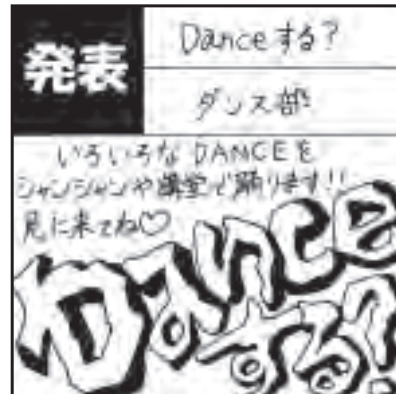 発表
Danceする?
ダンス部
いろいろな DANCEを
シャンシャンや講堂で踊ります!!
見に来てね♡
Dance
する?